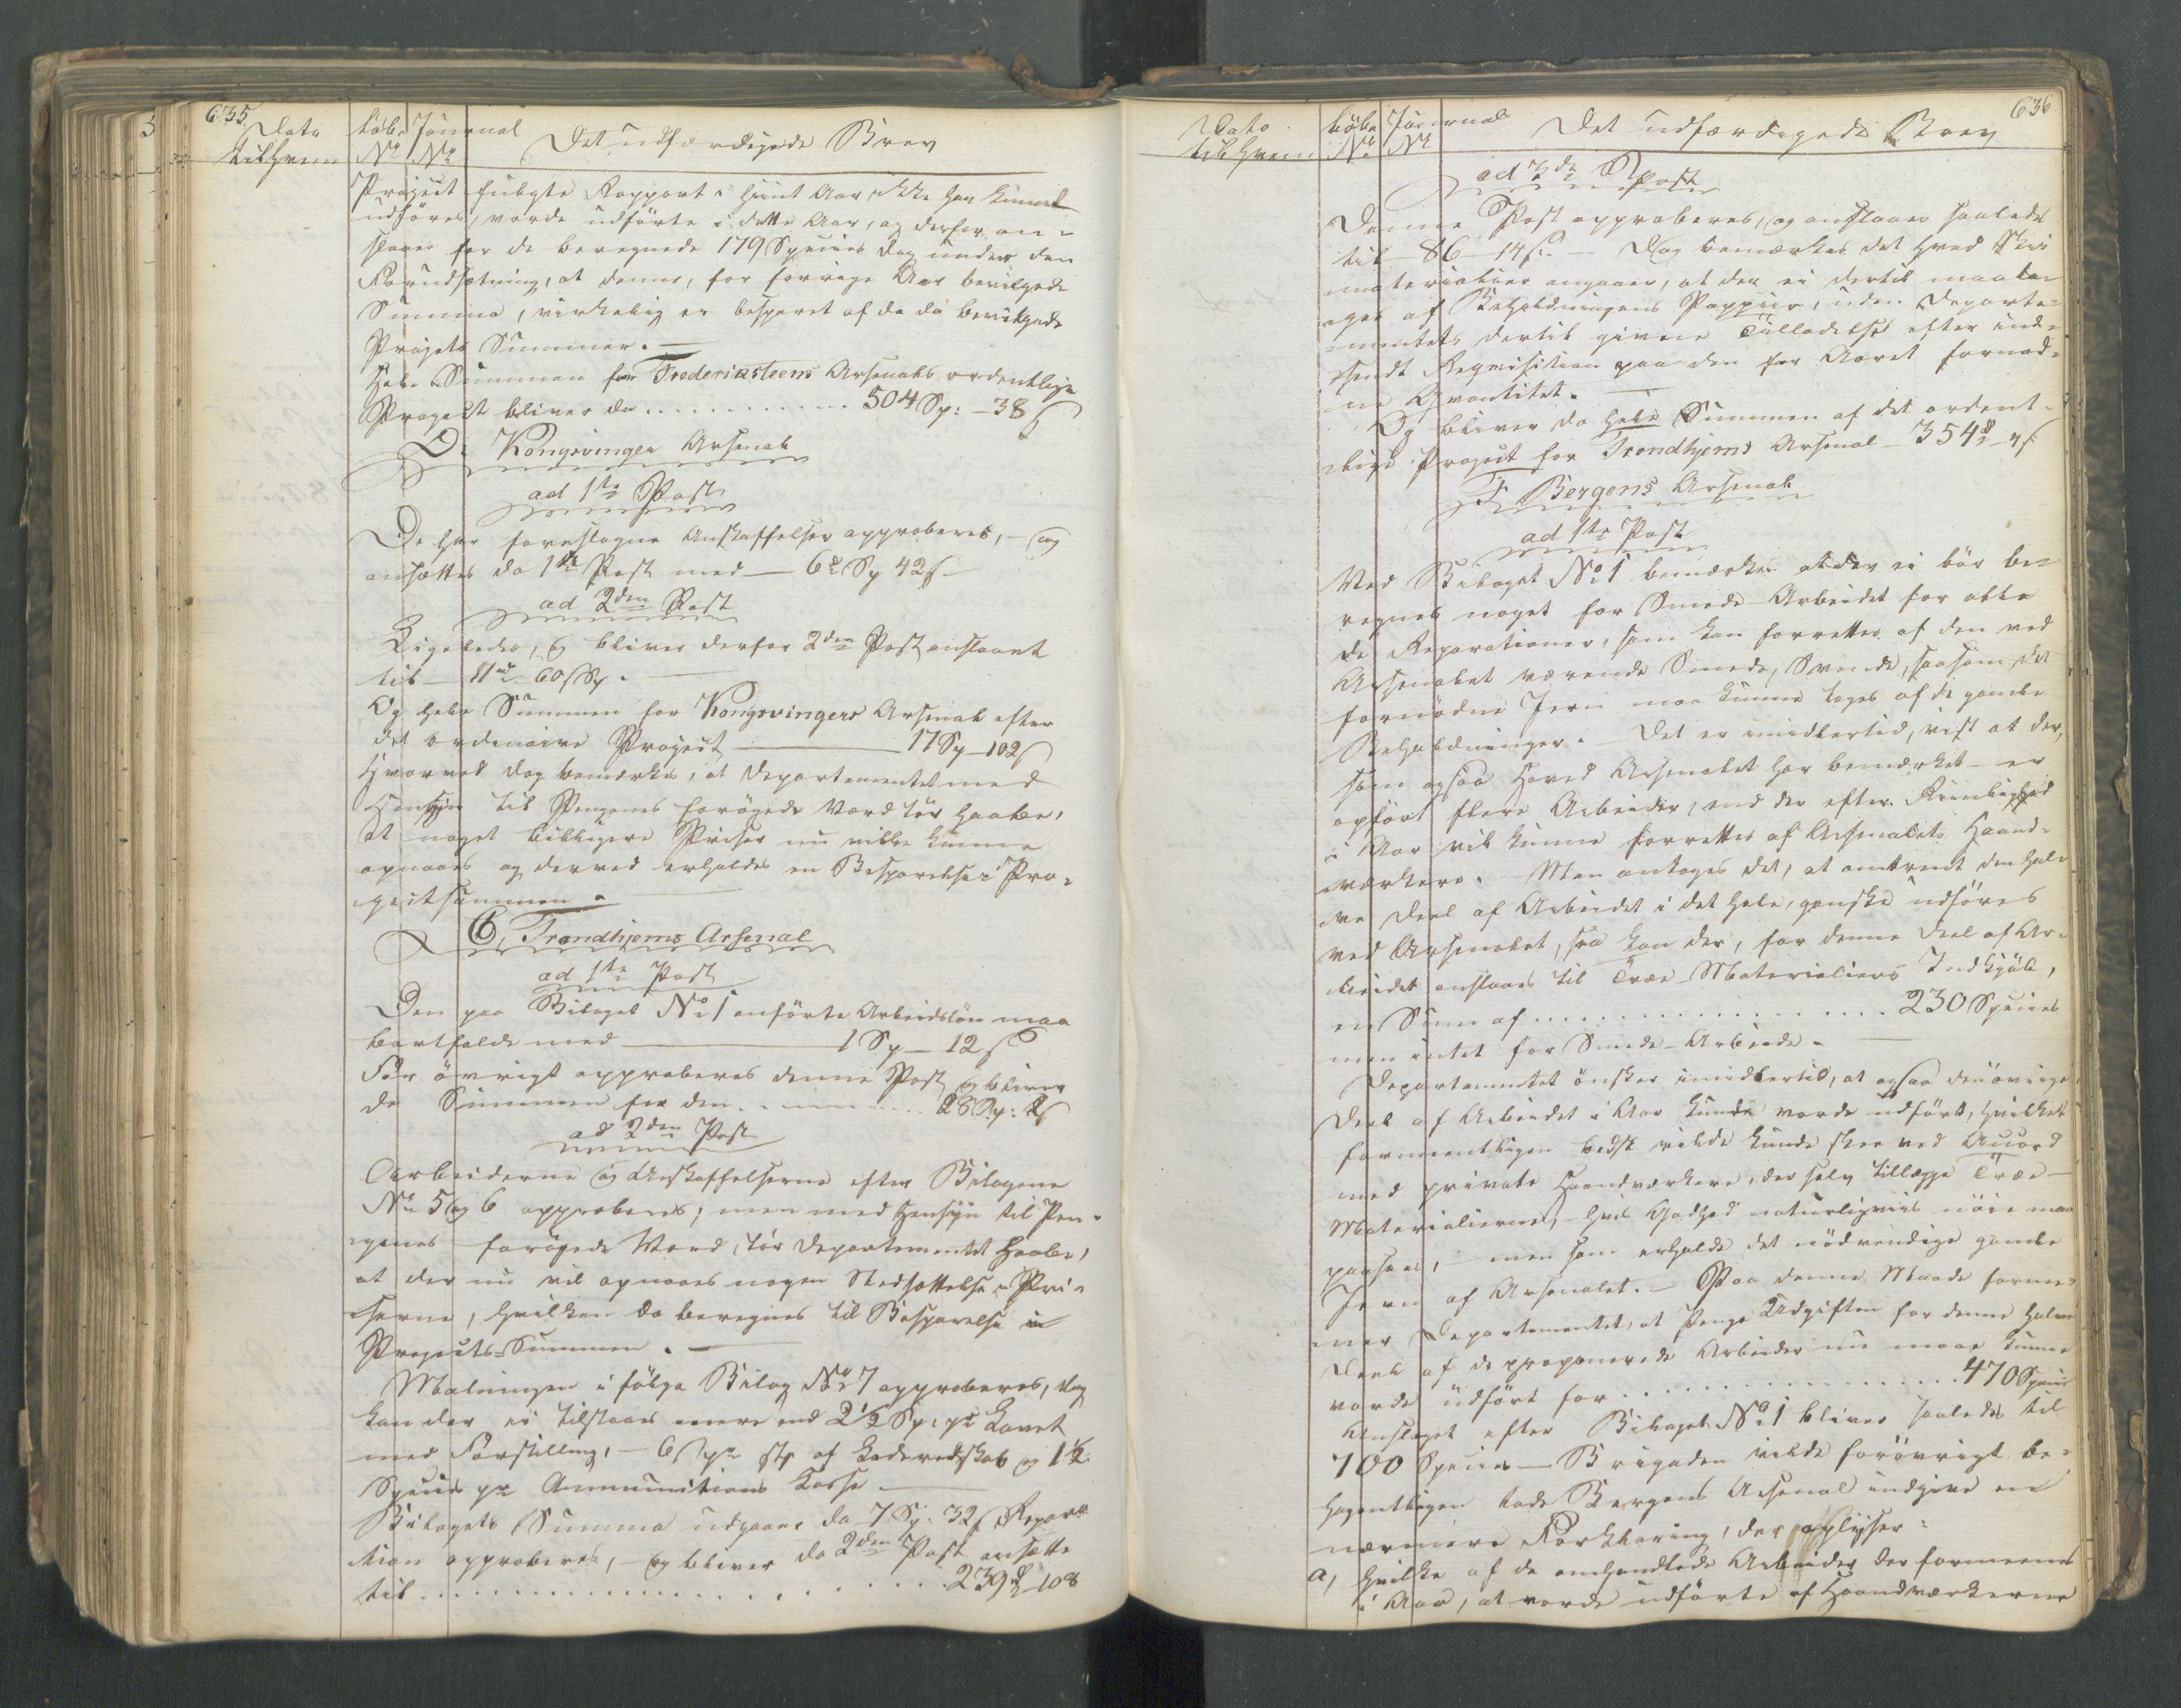 635.
Dato
til Hvem
Løbe
No
Journal
No
Det udfærdigede Brev
Project fulgte Rapport i hiint Aar, ikke har kunnet
udføres, vorde udførte i dette Aar, og derfor an-
slaaes for de beregnede 179 Species dog under den
Forudsætning, at denne, for forrige Aar bevilgede
Summa, virkelig er besparet af da da bevilgede
Projects Summer. —
Hele Summen for Frederiksteens Arsenals ordentlige
Project bliver da ........... 504 Sp: – 38 ß
D. Kongsvinger Arsenal
ad 1ste Post
De her foreslagne Anskaffelser approberes, – og
ansættes da 1ste Post med — 6 Sp 42 ß
ad 2den Post
Ligeledes, og bliver derfor 2den Post anslaaet
til — 11 – 60 ß.
Og hele Summen for Kongsvingers Arsenal efter
det ordinaire Project ——— 17 Sp – 102 ß
Hvorved dog bemærkes, at Departementet med
Hensyn til Pengenes forøgede Værd tør haabe,
at noget billigere Priser nu ville kunne
opnaaes og derved erholdes en Besparelse i Pro-
jectsummen.
E, Trondhjems Arsenal
ad 1ste Post
Den paa Bilaget No 1 anførte Arbeidsløn maa
bortfalde med ——— 1 Sp – 12 ß
For øvrigt approberes denne Post og bliver
da Summen for den ........ 28 Sp: 2 ß
ad 2den Post
Arbeiderne og Anskaffelserne efter Bilagene
No 5 og 6 approberes; men med Hensyn til Pen-
genes forøgede Værd, tør Departementet haabe,
at der nu vil opnaaes nogen Nedsættelse i Pri-
serne, hvilken da beregnes til Besparelse i
Projects-Summen. —
Malningen i følge Bilag No 7 approberes, dog
kan der ei tilstaaes mere end 2½ Sp. pr Lavet
med Forstilling, – 6 ß pr stk af Laderedskab og 1½
Species pr Ammunitions Kasse. —
Bilagets Summa udgaaer da 7 Sp: 32 ß Repara-
tion approberes, – og bliver da 2den Post ansatte
til ........... 239 – 108
636
Dato
til Hvem
Løbe
No
Journal
No
Det udfærdigede Brev
ad 3die Post
Denne Post approberes, og anslaaes saaledes
til — 86 – 14 ß. — Dog bemærkes det hvad Skriv
materialier angaaer, at der ei dertil maa ta-
ges af Beholdningens Pappiir, uden Departe-
mentets dertil givne Tilladelse efter ind-
sendt Reqvisition paa den for Aaret fornød-
ne Qvantitet. —
Og bliver da hele Summen af det ordent-
lige Project for Trondhjems Arsenal 354 – 4 ß
F Bergens Arsenal
ad 1ste Post
Ved Bilaget No 1 bemærkes at der ei bør be-
regnes noget for Smede-Arbeidet for alle
de Reparationer, som kan forrettes af den ved
Arsenalet værende Smede, Svende, saasom det
fornødne Jern maa kunne tages af de gamle
Beholdninger. — Det er imidlertid, vist at der,
som ogsaa Hoved Arsenalet har bemærket – er
opført flere Arbeider, end der efter Rimelighed
i Aar vil kunne forrettes af Arsenalets Haand-
værkere. Man antages det, at omtrent den hal-
ve Deel af Arbeidet i det hele, ganske udføres
ved Arsenalet, saa kan der, for denne Deel af Ar-
beidet anslaaes til Træe-Materialiers Indkjøb,
en Sum af ................ 230 Species
men intet for Smede-Arbeide. —
Departementet ønsker imidlertid, at ogsaa den øvrige
Deel af Arbeidet i Aar kunde vorde udført, hvilket
formeentligen bedst vilde kunde skee ved Accord
med private Haandværkere, der selv tillægge Træe-
Materialierne, – hvis Godhed naturligviis nøie maa
paasees, – men som erholde det nødvendige gamle
Jern af Arsenalet. — Paa denne Maade forme-
ner Departementet, at Penge Udgiften for denne halve
Deel af de proponerede Arbeider nu maae kunne
vorde udført for ............... 470 Species
Anslaget efter Bilaget No 1 bliver saaledes til
700 Species — Brigaden vilde forøvrigt be-
hagentligen lade Bergens Arsenal indgive en
nærmere Forklaring, der oplyser:
a, hvilke af de omhandlede Arbeider der formeenes
i Aar, at vorde udførte af Haandværkerne